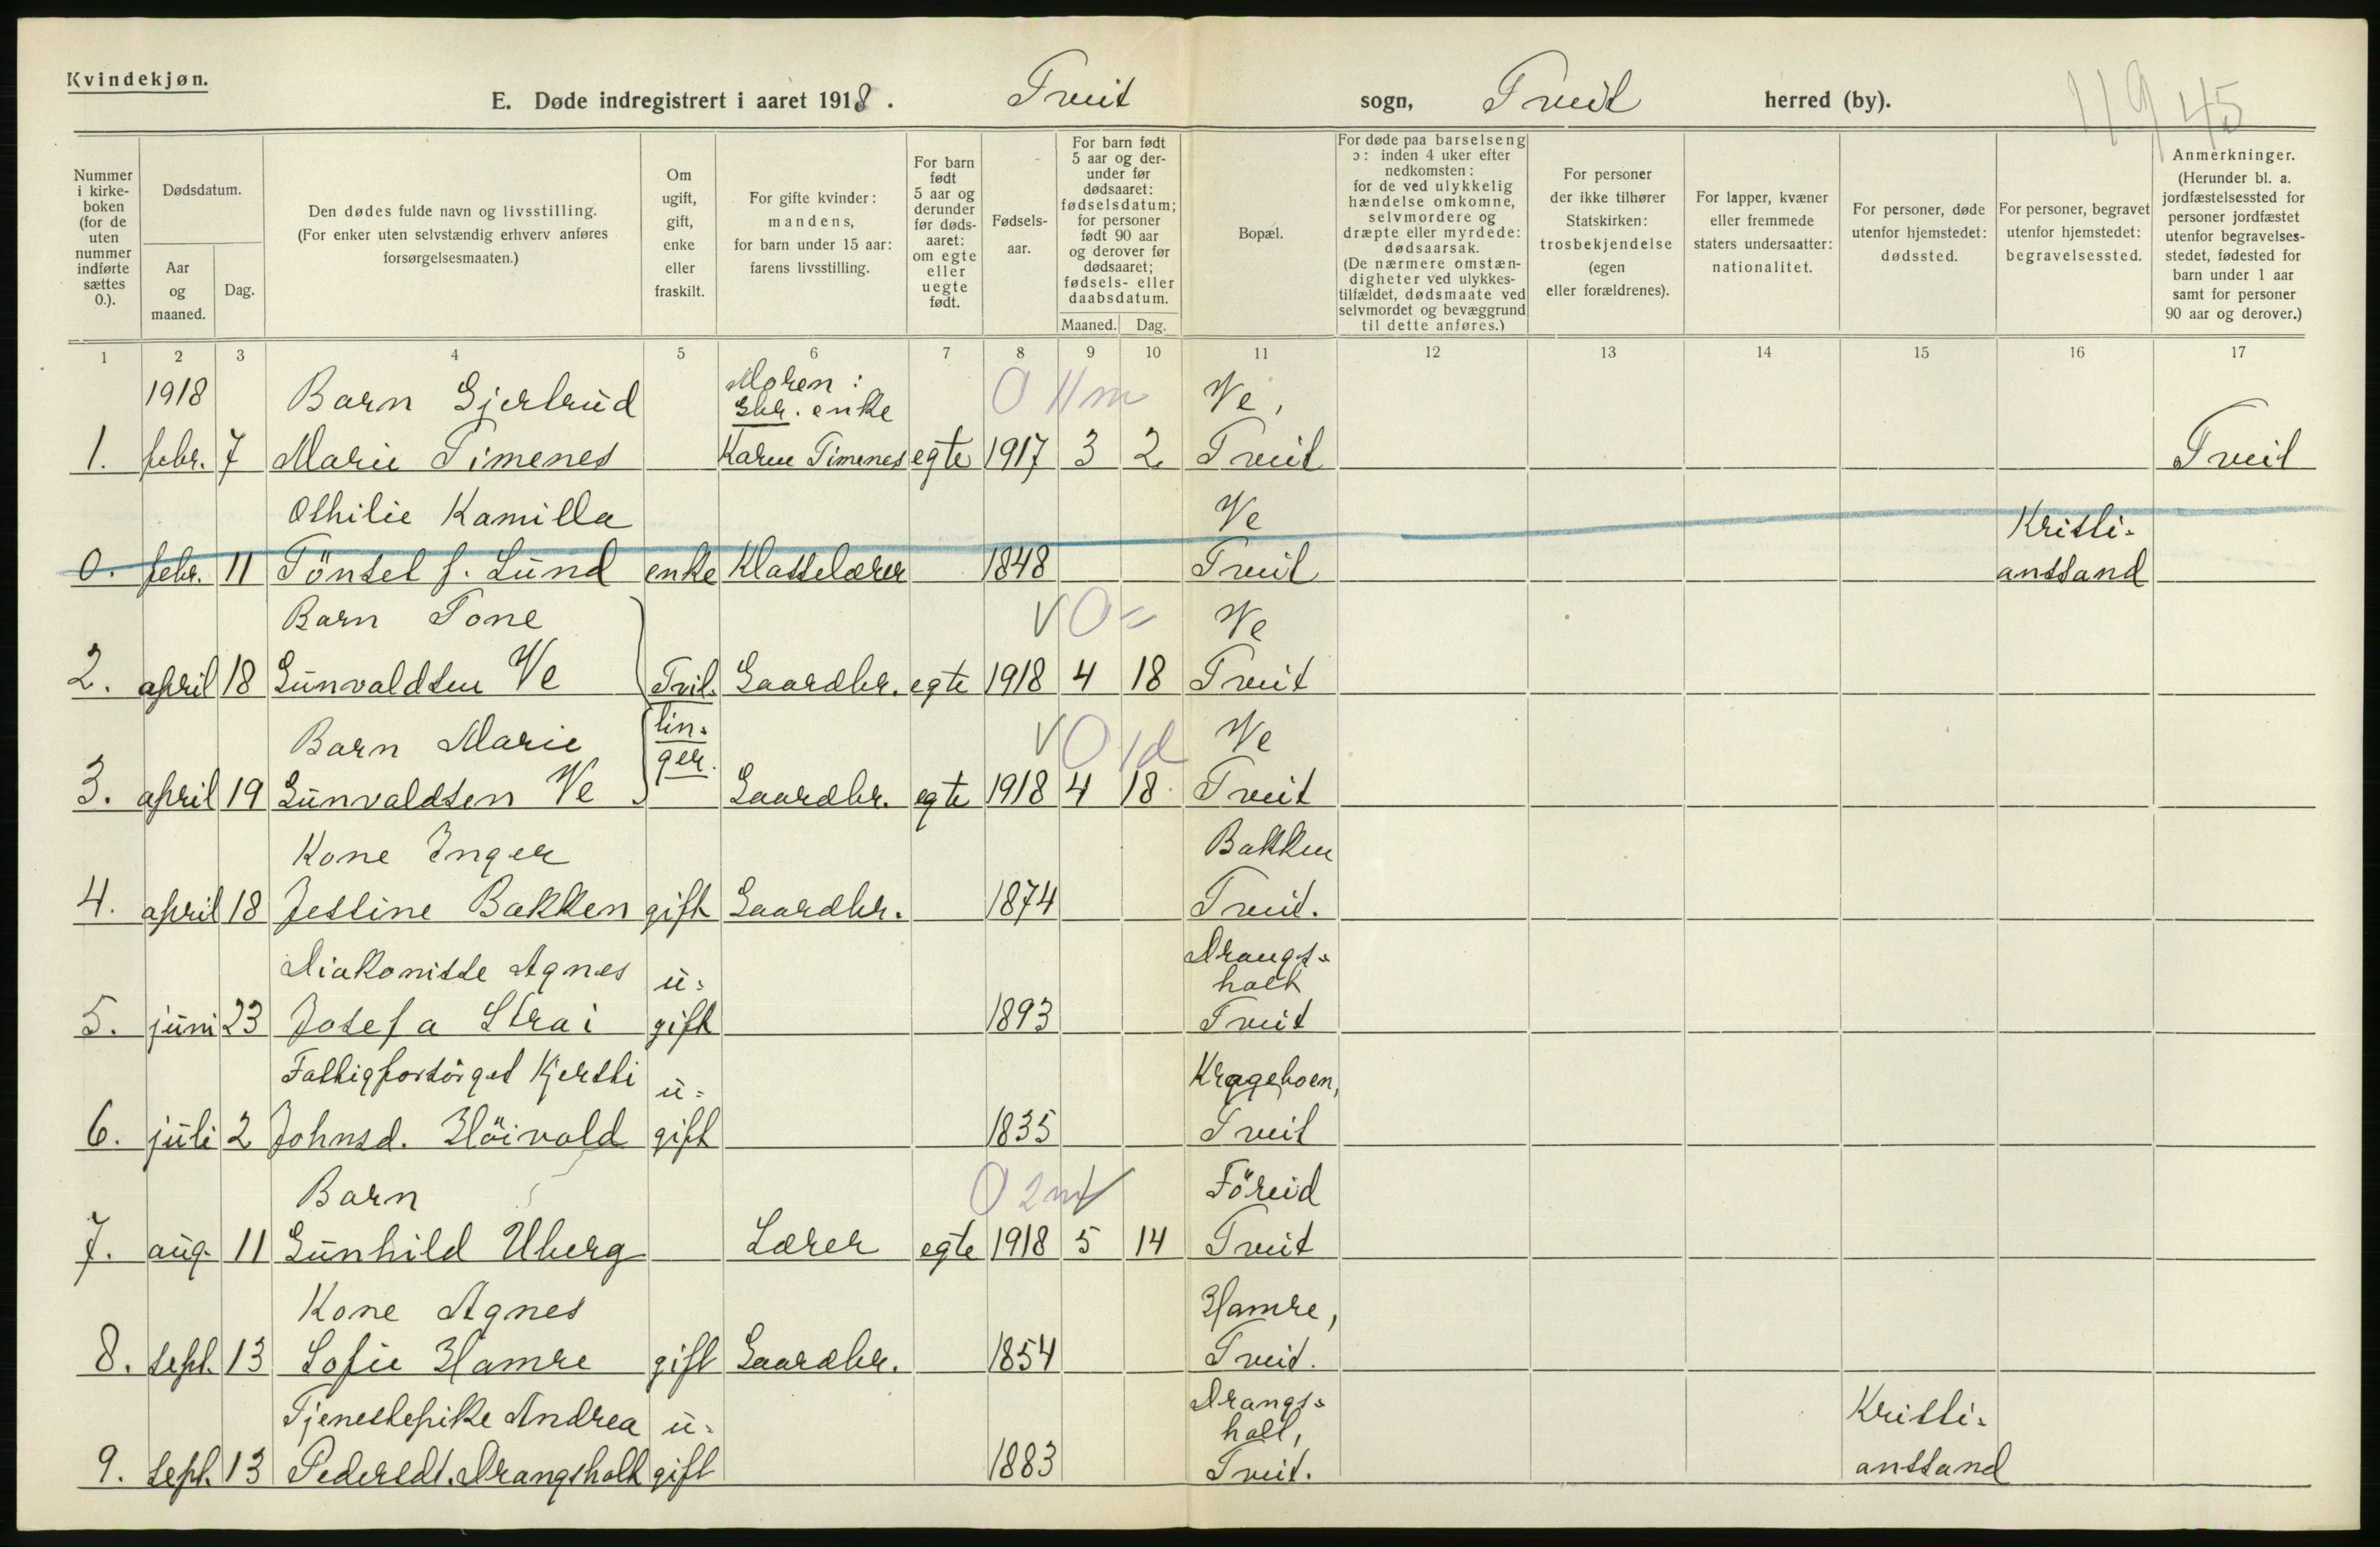 Kvindekjøn.
E. Døde indregistrert i aaret 1918. Tveit sogn, Tveit herred (by).
119 45
Nummer i kirkeboken (for de uten nummer indførte sættes 0.).
Dødsdatum.
Aar og maaned.
Dag.
Den dødes fulde navn og livsstilling.
(For enker uten selvstændig erhverv anføres forsørgelsesmaaten.)
Om ugift, gift, enke eller fraskilt.
For gifte kvinder: mandens, for barn under 15 aar: farens livsstilling.
For barn født 5 aar og derunder før dødsaaret: om egte eller uegte født.
Fødselsaar.
For barn født 5 aar og derunder før dødsaaret: fødselsdatum; for personer født 90 aar og derover før dødsaaret; fødsels- eller daabsdatum.
Maaned.
Dag.
Bopæl.
For døde paa barselseng ɔ: inden 4 uker efter nedkomsten: for de ved ulykkelig hændelse omkomne, selvmordere og dræpte eller myrdede: dødsaarsak. (De nærmere omstændigheter ved ulykkestilfældet, dødsmaate ved selvmordet og bevæggrund til dette anføres.)
For personer der ikke tilhører Statskirken: trosbekjendelse (egen eller forældrenes).
For lapper, kvæner eller fremmede staters undersaatter: nationalitet.
For personer, døde utenfor hjemstedet: dødssted.
For personer, begravet utenfor hjemstedet: begravelsessted.
Anmerkninger. (Herunder bl. a. jordfæstelsessted for personer jordfæstet utenfor begravelsesstedet, fødested for barn under 1 aar samt for personer 90 aar og derover.)
1 2 3 4 5 6 7 8 9 10 11 12 13 14 15 16 17
1918 Barn Gjertrud Moren: Gbr. enke 0 11m Ve,
1. febr. 7 Marie Timenes Karen Timenes egte 1917 3 2 Tveit Tveit
Othilie Kamilla Ve Kristi-
0. febr. 11 Tönsel f. Lund enke Klasselærer 1848 Tveit anssand
Barn Tone V 0 = Ve
2. april 18 Gunvaldsen Ve Tvil- Gaardbr. egte 1918 4 18 Tveit
Barn Marie lin- V 0 1d Ve
3. april 19 Gunvaldsen Ve ger. Gaardbr. egte 1918 4 18 Tveit
Kone Inger Bakken
4. april 18 Jessine Bakken gift Gaardbr. 1874 Tveit.
Diakonisse Agnes u- Drangs-holt
5. juni 23 Josefa Strai gift 1893 Tveit
Fattigforsörget Kjersti u- Krageboen,
6. juli 2 Johnsd. Höivold gift 1835 Tveit
Barn 0 2m V Föreid
7. aug. 11 Gunhild Uberg Lærer egte 1918 5 14 Tveit
Kone Agnes Hamre,
8. sept. 13 Sofie Hamre gift Gaardbr. 1854 Tveit.
Tjenestepike Andrea u- Drangs-holt, Kristi-
9. sept. 13 Pedersdt. Drangsholt gift 1883 Tveit. anssand